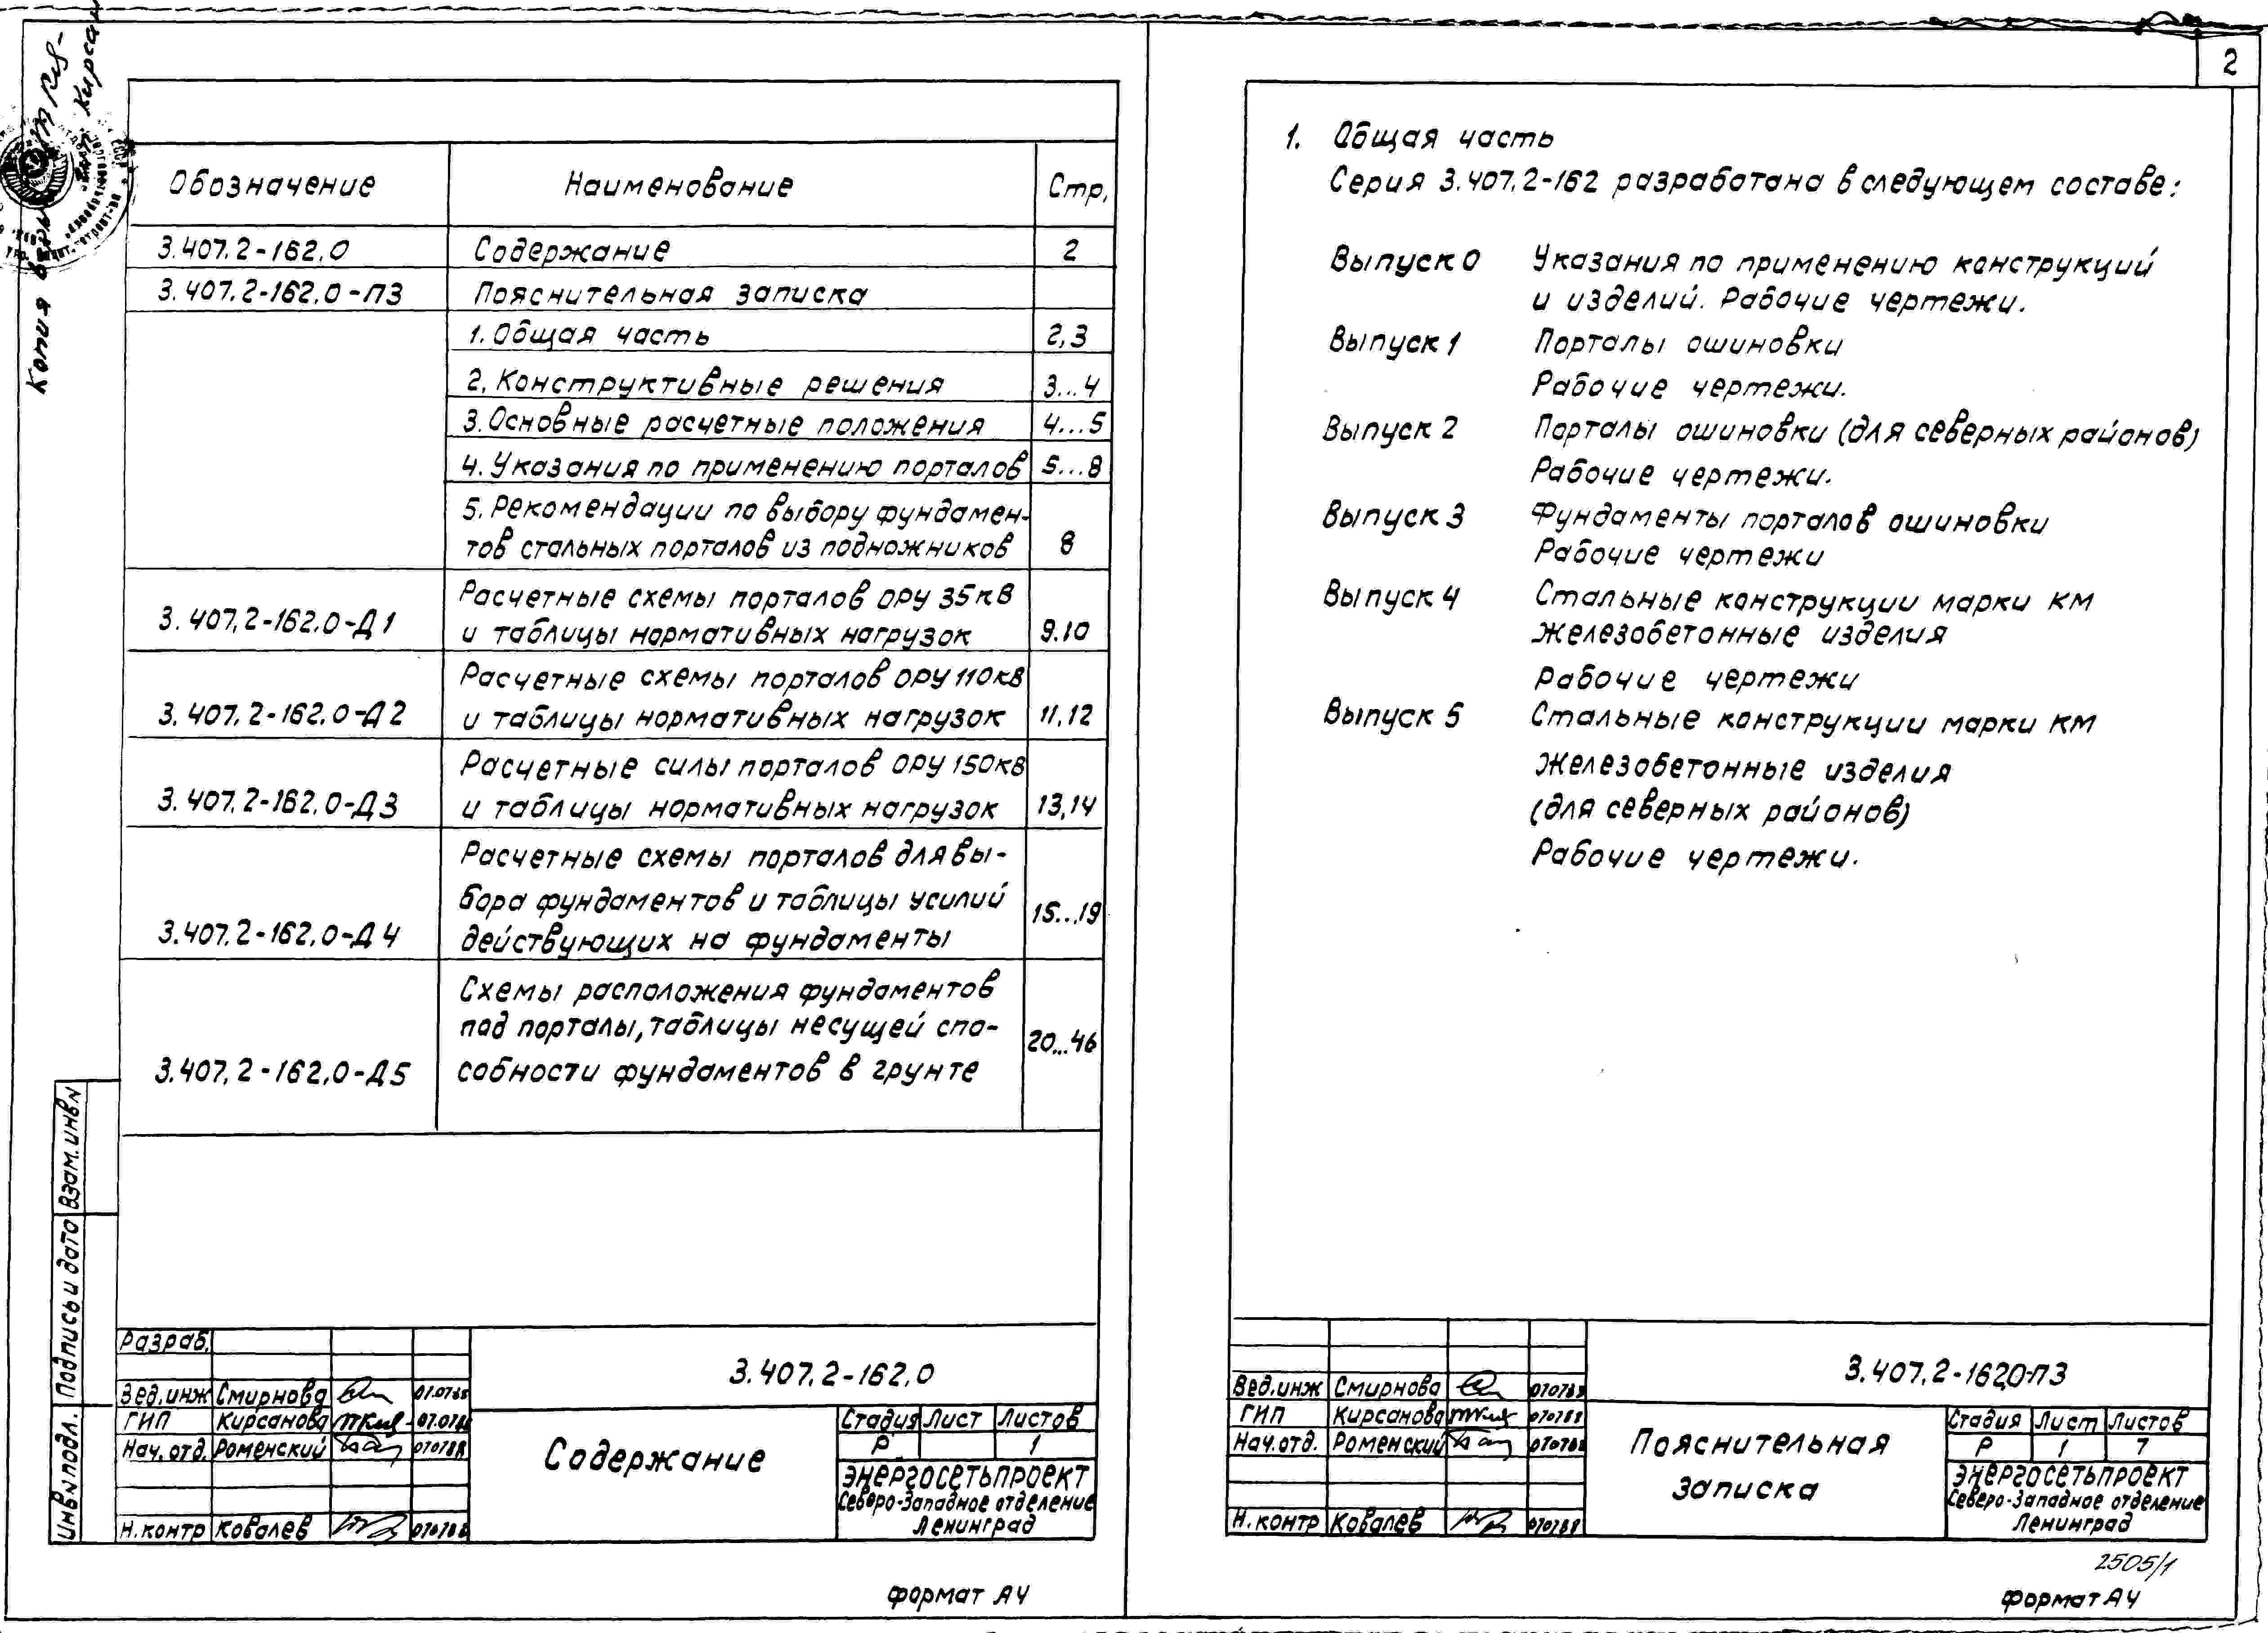 Копия верна
2
Обозначение Наименование Стр.
3.407.2-162.0 Содержание 2
3.407.2-162.0-ПЗ Пояснительная записка
1. Общая часть 2,3
2. Конструктивные решения 3...4
3. Основные расчетные положения 4...5
4. Указания по применению порталов 5...8
5. Рекомендации по выбору фундамен-
тов стальных порталов из подножников 8
Расчетные схемы порталов ОРУ 35кВ
3.407.2-162.0-Д1 и таблицы нормативных нагрузок 9.10
Расчетные схемы порталов ОРУ 110кВ
3.407.2-162.0-Д2 и таблицы нормативных нагрузок 11,12
Расчетные силы порталов ОРУ 150кВ
3.407.2-162.0-Д3 и таблицы нормативных нагрузок 13,14
Расчетные схемы порталов для вы-
бора фундаментов и таблицы усилий 15...19
3.407.2-162.0-Д4 действующих на фундаменты
Схемы расположения фундаментов
под порталы, таблицы несущей спо- 20...46
3.407.2-162.0-Д5 собности фундаментов в грунте
Инв.N подл. Подпись и дата Взам.инв.N
Разраб.
3.407.2-162.0
Вед.инж Смирнова 07.07.88
ГИП Кирсанова 07.07.88
Нач.отд. Роменский 07.07.88
Н.контр Ковалев 07.07.88
Содержание
Стадия Лист Листов
Р 1
ЭНЕРГОСЕТЬПРОЕКТ
Северо-Западное отделение
Ленинград
Формат А4
1. Общая часть
Серия 3.407.2-162 разработана в следующем составе:
Выпуск 0 Указания по применению конструкций
и изделий. Рабочие чертежи.
Выпуск 1 Порталы ошиновки
Рабочие чертежи.
Выпуск 2 Порталы ошиновки (для северных районов)
Рабочие чертежи.
Выпуск 3 Фундаменты порталов ошиновки
Рабочие чертежи
Выпуск 4 Стальные конструкции марки КМ
Железобетонные изделия
Рабочие чертежи
Выпуск 5 Стальные конструкции марки КМ
Железобетонные изделия
(для северных районов)
Рабочие чертежи.
3.407.2-162.0-ПЗ
Вед.инж Смирнова 070788
ГИП Кирсанова 070788
Нач.отд. Роменский 070788
Н.контр Ковалев 070788
Пояснительная
записка
Стадия Лист Листов
Р 1 7
ЭНЕРГОСЕТЬПРОЕКТ
Северо-Западное отделение
Ленинград
2505/1
Формат А4